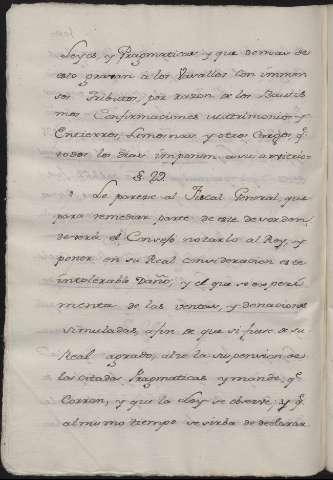 Leyes, y Pragmaticas y que demas de
eso gravan à los Vasallos con immen
sos Tributos, por razon de los Bautis
mos Confirmaciones Matrimonios y
Entierros, Limosnas y otras Cargas q.
todos los dias imponen a su arvitrio
§. 22.
Le parece al Fiscal General, que
para remediar parte de este desorden
deverá el Consejo notarlo al Rey, y
poner en su Real consideracion este
intolerable Daño, y el que se esperi
menta de las ventas, y donaciones
simuladas, afin de que si fuese de su
Real agrado, alze la suspension de
las citadas Pragmaticas y mande q.
Corran, y que la Ley se observe; y q.
al mismo tiempo se sirba de declarar